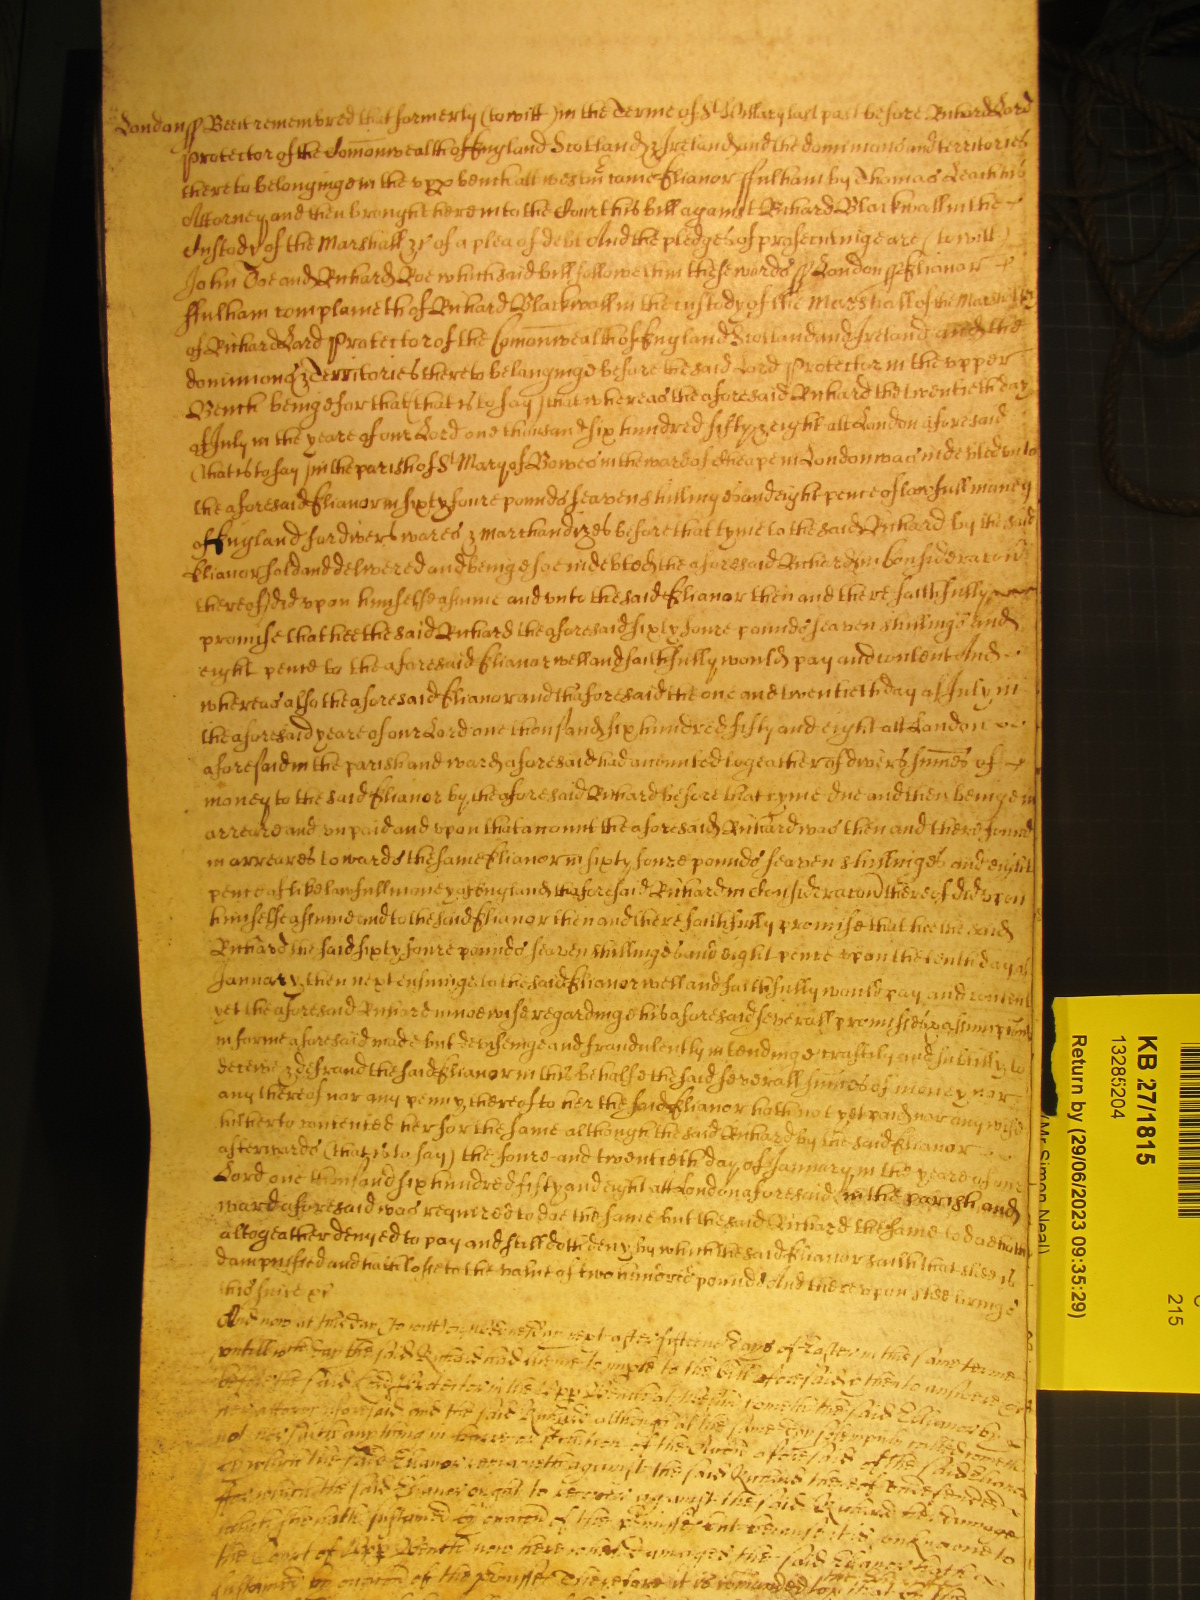 London ss Bee it remembred that formerly (to witt) in the Terme of St Hillary last past before Richard Lord
Protector of the Comonwealth of England Scotland & Ireland and the dominions and territories
thereto belonginge in the upp bench att westm came Elianor ffulham by Thomas Leach his
Attorney and then brought here into the Court his bill against Richard Blackwall in the
Custody of the Marshall &c of a plea of debt And the pledges of prosecutinge are (to witt)
John Doe and Richard Roe which said bill followeth in these words ss London ss Elianor
ffulham complaineth of Richard Blackwall in the custody of the Marshall of the Marshalsey
of Richard Lord Protector of the Comonwealth of England Scotland and Ireland and the
dominions & Territories thereto belonginge before the said Lord Protector in the upper
Bench beinge for that (that is to say) that whereas the aforesaid Richard the twentieth day
of July in the yeare of our Lord one thousand six hundred fifty & eight att London aforesaid
(that is to say) in the parish of St Mary of Bowes in the ward of Cheape in London was indebted unto
the aforesaid Elianor in sixty foure pounds seaven shillings and eight pence of lawfull money
of England for divers wares & marchandizes before that tyme to the said Richard by the said
Elianor sold and delivered and beinge soe indebted the aforesaid Richard in consideracon
thereof did upon himselfe assume and unto the said Elianor then and there faithfully
promise that hee the said Richard the aforesaid sixty foure pounds seaven shillings and
eight pence to the aforesaid Elianor well and faithfully would pay and content And
whereas also the aforesaid Elianor and the aforesaid the one and twentieth day of July in
the aforesaid yeare of our Lord one thousand six hundred fifty and eight att London
aforesaid in the parish and ward aforesaid had accounted togeather of divers summes of
money to the said Elianor by the aforesaid Richard before that tyme due and then beinge in
arreare and unpaid and upon that account the aforesaid Richard was then and there found
in arreares towards the same Elianor in sixty foure pounds seaven shillinges and eight
pence of like lawfull money of England the aforesaid Richard in consideracon thereof did upon
himselfe assume and to the said Elianor then and there faithfully promise that hee the said
Richard the said sixty foure pounds seaven shillings and eight pence upon the tenth day of
January then next ensuinge to the said Elianor well and faithfully would pay and content
yet the aforesaid Richard in noe wise regardinge his aforesaid severall promises & assumptions
in forme aforesaid made but devisinge and fraudulently intendinge craftily and subtilly to
deceive & defraud the said Elianor in this behalfe the said severall summes of money nor
any thereof nor any penny thereof to her the said Elianor hath not yet paid nor any wise
hitherto contented her for the same although the said Richard by the said Elianor
afterwards (that is to say) the foure and twentieth day of January in the yeare of our
Lord one thousand six hundred fifty and eight att London aforesaid in the parish and
ward aforesaid was required to doe the same but the said Richard the same to doe hath
altogeather denyed to pay and still doth deny by which the said Elianor saith that shee is
dampnified and hath losse to the value of two hundred pounds And thereupon shee bringe
this suite &c
And now at this day (to witt) on Wednesday next after fifteene dayes of Easter in this same terme
untill which day the said Richard had licence to imple to the bill aforesaid & then to answere &c
before the said Lord Protector in the Upp Bench at Westm cometh the said Elianor by
her attorny aforesaid and the said Richard although at the same day solempnly called cometh
not nor saith anything in barre or of the Accon aforesaid of the said Elianor
by which the said Elianor remaineth against the said Richard thereof undefended
for which the said Elianor ought to recover against the said Richard her damages
which she hath sustained by occacon of the premisses but because it is unknowne to
the Court of Upp Bench now here what damages the said Elianor hath
sustained by occacon of the premisses Therefore it is comanded
KB 27/1815
13285204
Return by (29/06/2023 09:35:29)
(Mr Simon Neal)
215